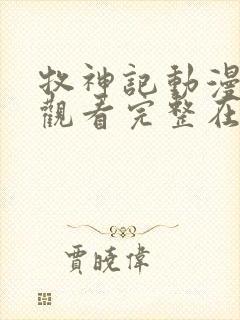 牧神記動漫
觀看完整在
賈曉偉